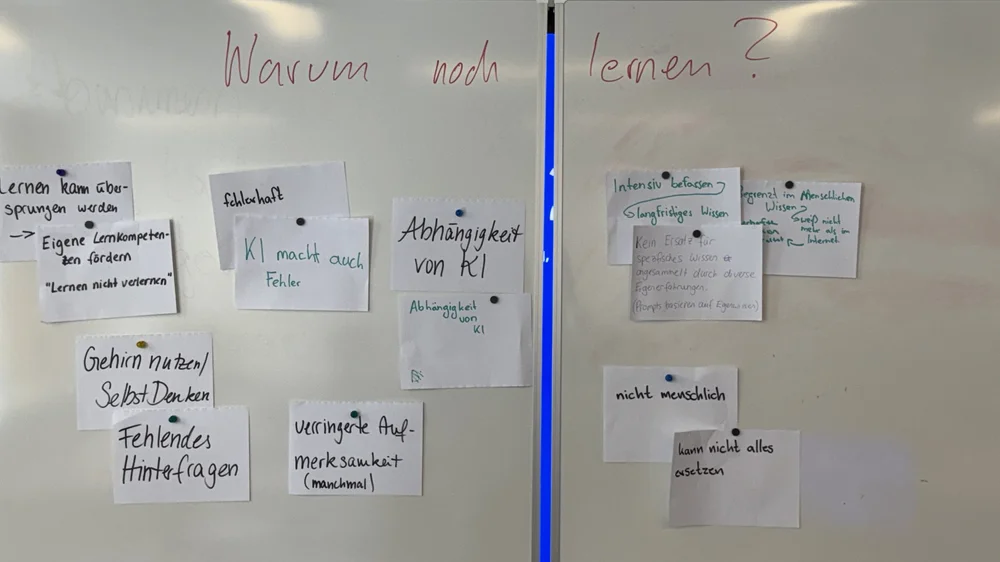 Warum noch lernen?
Lernen kann über-
sprungen werden
→ Eigene Lernkompeten-
zen fördern
"Lernen nicht verlernen"
fehlerhaft
KI macht auch
Fehler
Abhängigkeit
von KI
Abhängigkeit
von
KI
Gehirn nutzen/
Selbst Denken
Fehlendes
Hinterfragen
verringerte Auf-
merksamkeit
(manchmal)
Intensiv befassen
langfristiges Wissen
begrenzt im Menschlichen
Wissen
weiß nicht
mehr als im
Internet
Kein Ersatz für
spezifisches Wissen
angesammelt durch diverse
Eigenerfahrungen.
basieren auf
nicht menschlich
kann nicht alles
ersetzen